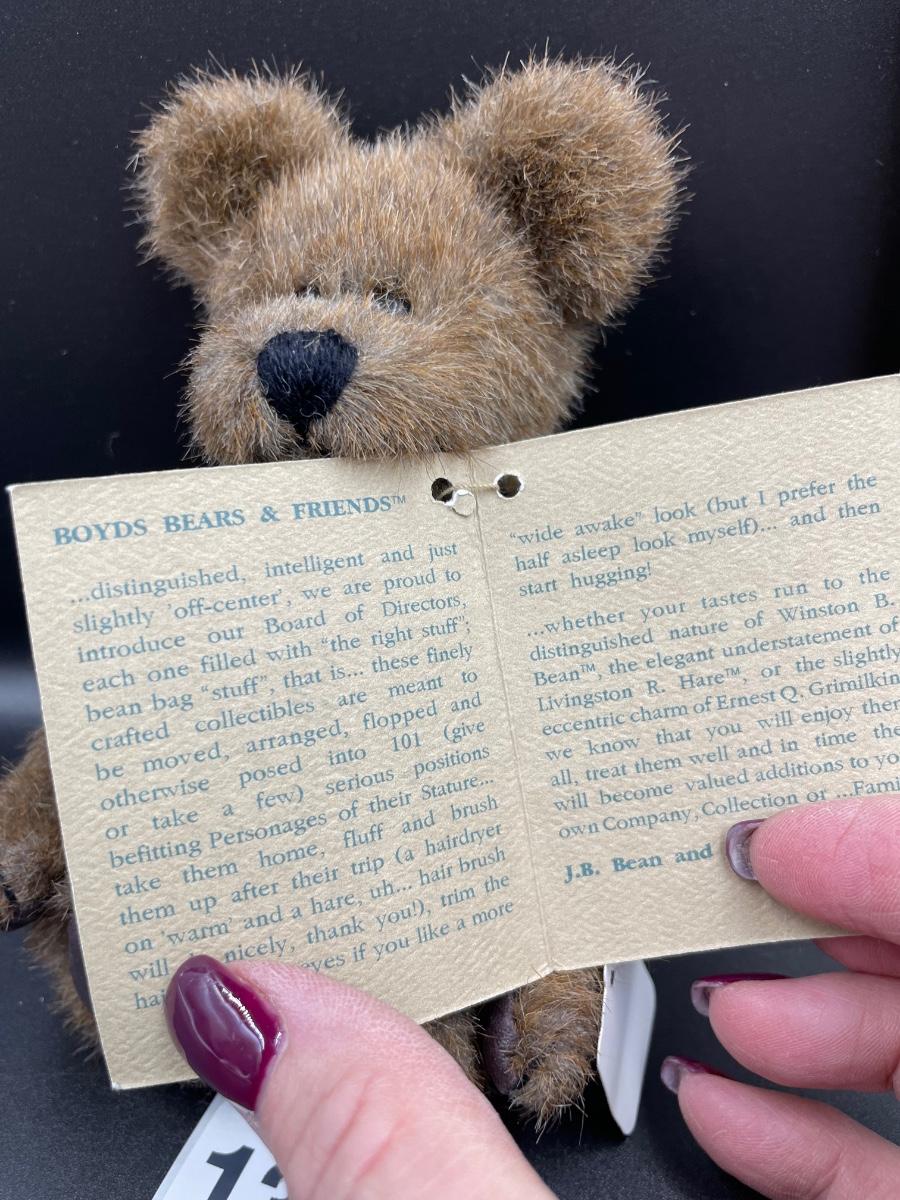 BOYDS BEARS & FRIENDS™
...distinguished, intelligent and just
slightly 'off-center', we are proud to
introduce our Board of Directors,
each one filled with "the right stuff";
bean bag "stuff", that is... these finely
crafted collectibles are meant to
be moved, arranged, flopped and
otherwise posed into 101 (give
or take a few) serious positions
befitting Personages of their Stature...
take them home, fluff and brush
them up after their trip (a hairdryer
on 'warm' and a hare, uh... hair brush
will nicely, thank you!), trim the
eyes if you like a more
"wide awake" look (but I prefer the
half asleep look myself)... and then
start hugging!
...whether your tastes run to the
distinguished nature of Winston B.
Bean™, the elegant understatement of
Livingston R. Hare™, or the slightly
eccentric charm of Ernest Q. Grimilkin
we know that you will enjoy
all, treat them well and in time
will become valued additions to
own Company, Collection or
J.B. Bean and